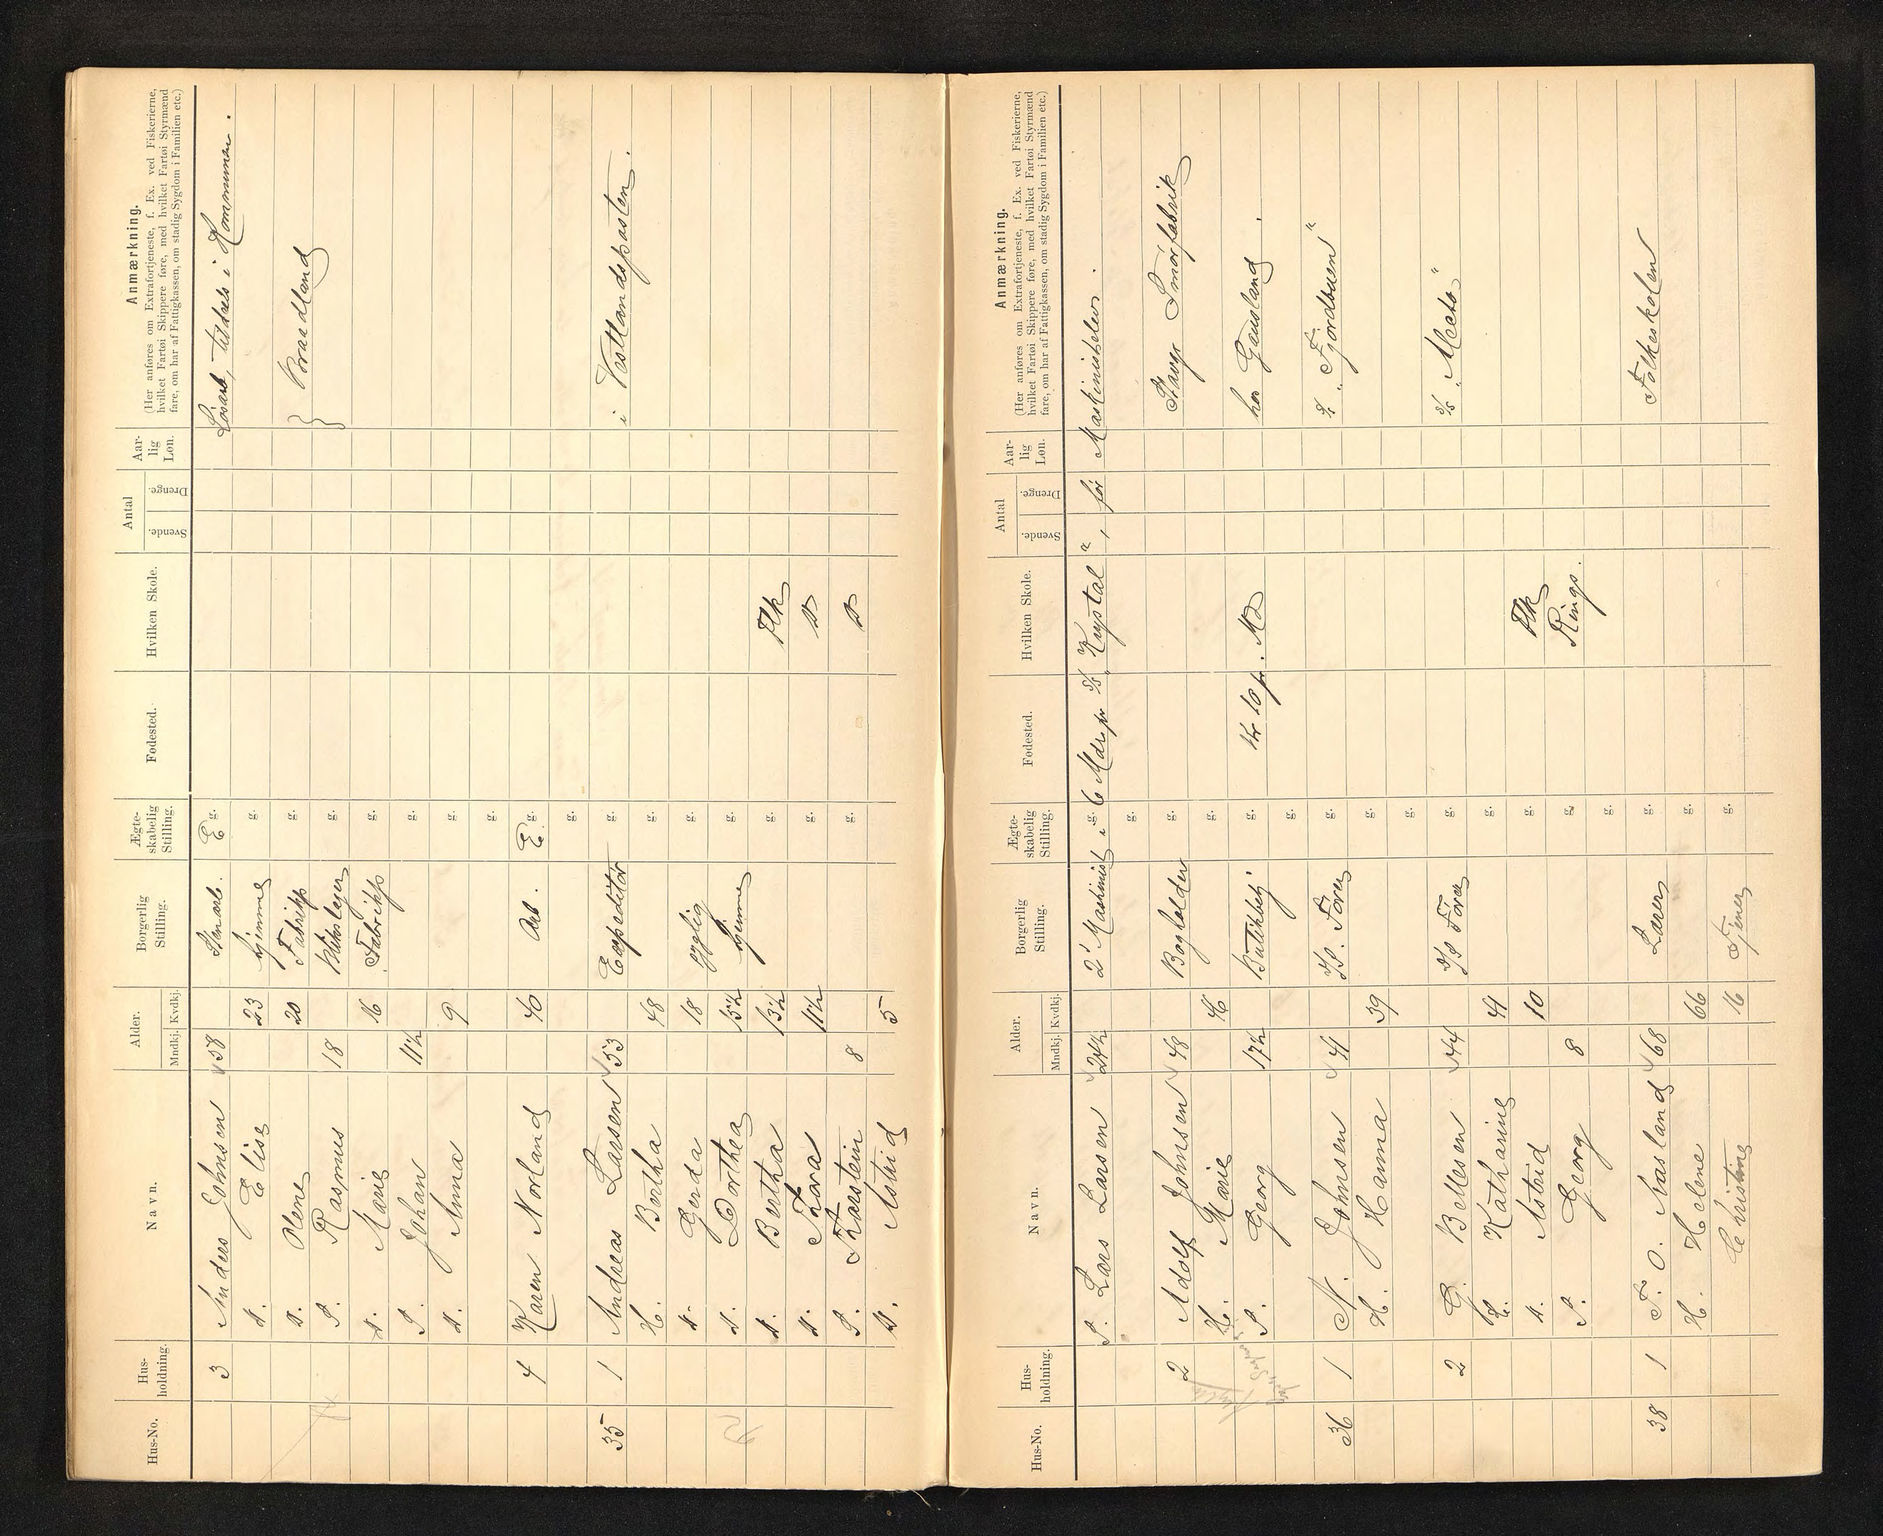 Hus-No. Hus-holdning. Navn. Alder. Mndkj. Kvdkj. Borgerlig Stilling. Ægte-skabelig Stilling. Fødested. Hvilken Skole. Antal Svende. Drenge. Aar-lig Løn. Anmærkning.
(Her anføres om Extrafortjeneste, f. Ex. ved Fiskerierne,
hvilket Fartøi Skippere føre, med hvilket Fartøi Styrmænd
fare, om har af Fattigkassen, om stadig Sygdom i Familien etc.)
3 Anders Johnsen 58 Stenarb. E g. Løsarb, tildels i Kommunen.
D. Elise 23 hjemme g.
D. Olene 20 Fabrikp g. } Brandland
S. Rasmus 18 Blikslager g.
D. Marie 16 Fabrikp g.
S. Johan 11½ g.
D. Anna 9 g.
g.
4 Karen Norland 40 Arb. E g.
g.
35 1 Andreas Larsen 53 Expeditør g. i Vestlandsposten.
H. Bertha 48 g.
D. Gerda 18 sygelig g.
D. Dorthea 15½ hjemme g.
D. Bertha 13½ g. Flk
D. Thora 11½ g. D
S. Thorstein 8 g. D
D. Astrid 5
Hus-No. Hus-holdning. Navn. Alder. Mndkj. Kvdkj. Borgerlig Stilling. Ægte-skabelig Stilling. Fødested. Hvilken Skole. Antal Svende. Drenge. Aar-lig Løn. Anmærkning.
(Her anføres om Extrafortjeneste, f. Ex. ved Fiskerierne,
hvilket Fartøi Skippere føre, med hvilket Fartøi Styrmænd
fare, om har af Fattigkassen, om stadig Sygdom i Familien etc.)
S. Lars Larsen 24½ 2' Maskinist i g. 6 Mdr. pr D/S "Krystal", før Maskinistelev.
g.
2 Adolf Johnsen 48 Bogholder g. Stavgr Smørfabrik
H. Marie 46 g.
S. Georg 17½ Butikbetj g. Kr 10 pr. Md hos Gausland.
g.
36 1 N. Johnsen 41 D/S. Fører g. D/S "Fjordbuen"
H. Hanna 39 g.
g.
2 G. Bellesen 44 D/S Fører g. D/S "Mecto"
H. Katharine 41 g.
D. Astrid 10 g. Flk
S. Georg 8 g. Kings.
g.
38 1 T. O. Aasland 68 Lærer g. Folkeskolen
H. Helene 66 g.
Christine 16 Tjener g.